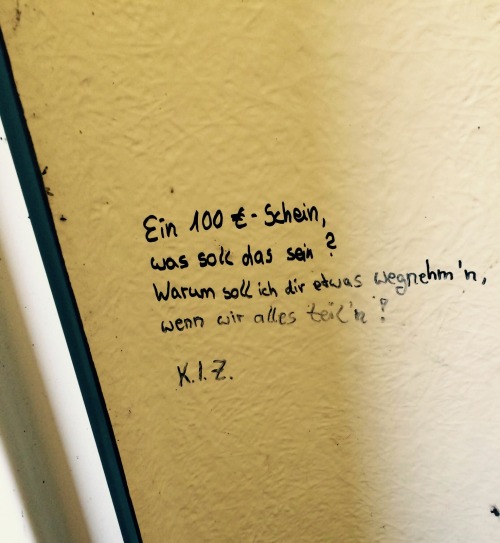 Ein 100 €-Schein,
was soll das sein?
Warum soll ich dir etwas wegnehm'n,
wenn wir alles teil'n?
K.I.Z.